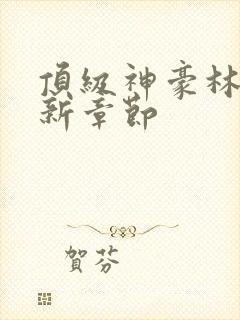 頂級神豪林
新章節
賀芬